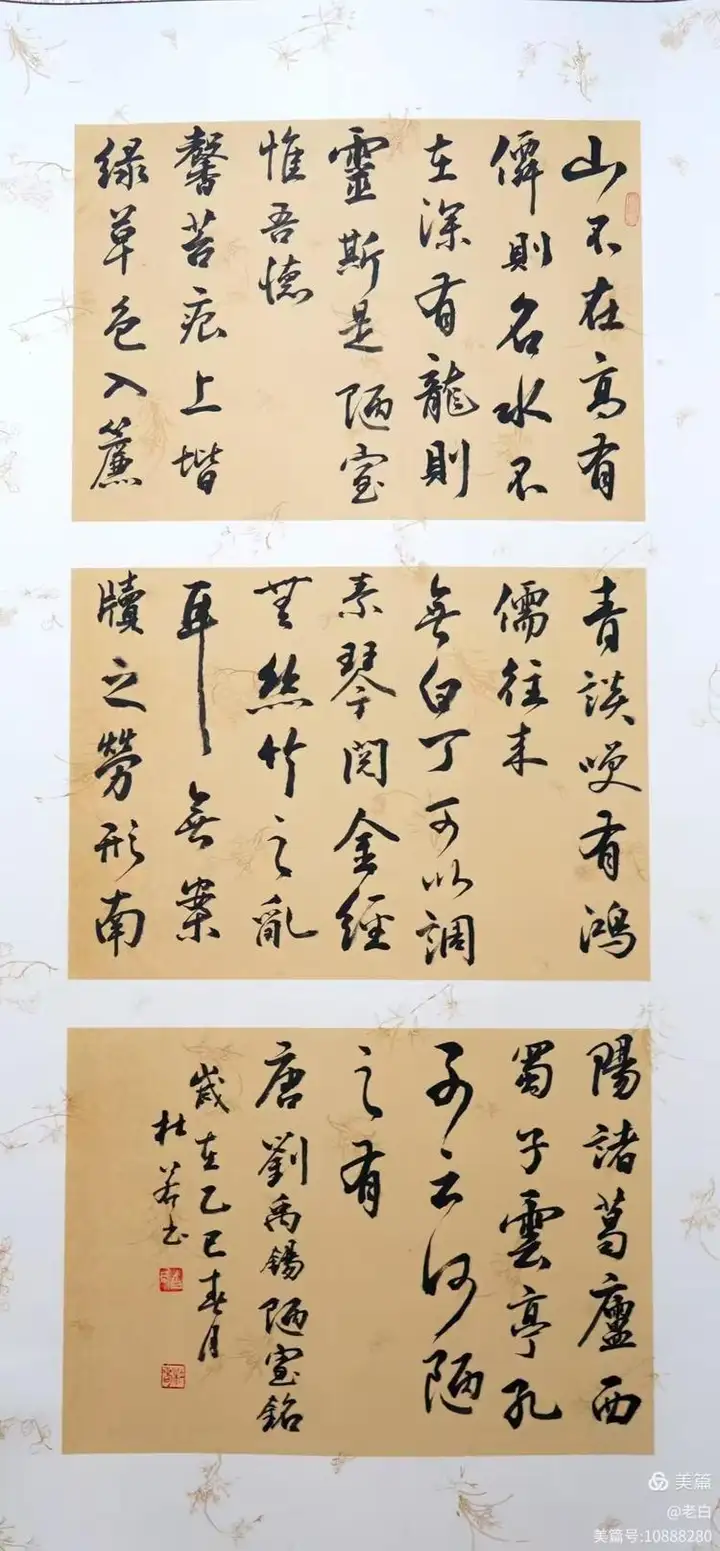 山不在高有
僊則名水不
在深有龍則
靈斯是陋室
惟吾德
馨苔痕上堦
绿草色入簾
青談咲有鴻
儒往来
無白丁可以調
素琴閱金經
無絲竹之亂
耳無案
牘之勞形南
陽諸葛廬西
蜀子雲亭孔
子云何陋
之有
唐劉禹錫陋室銘
歲在乙巳春月
杜若书
美篇
@老白
美篇号:10888280